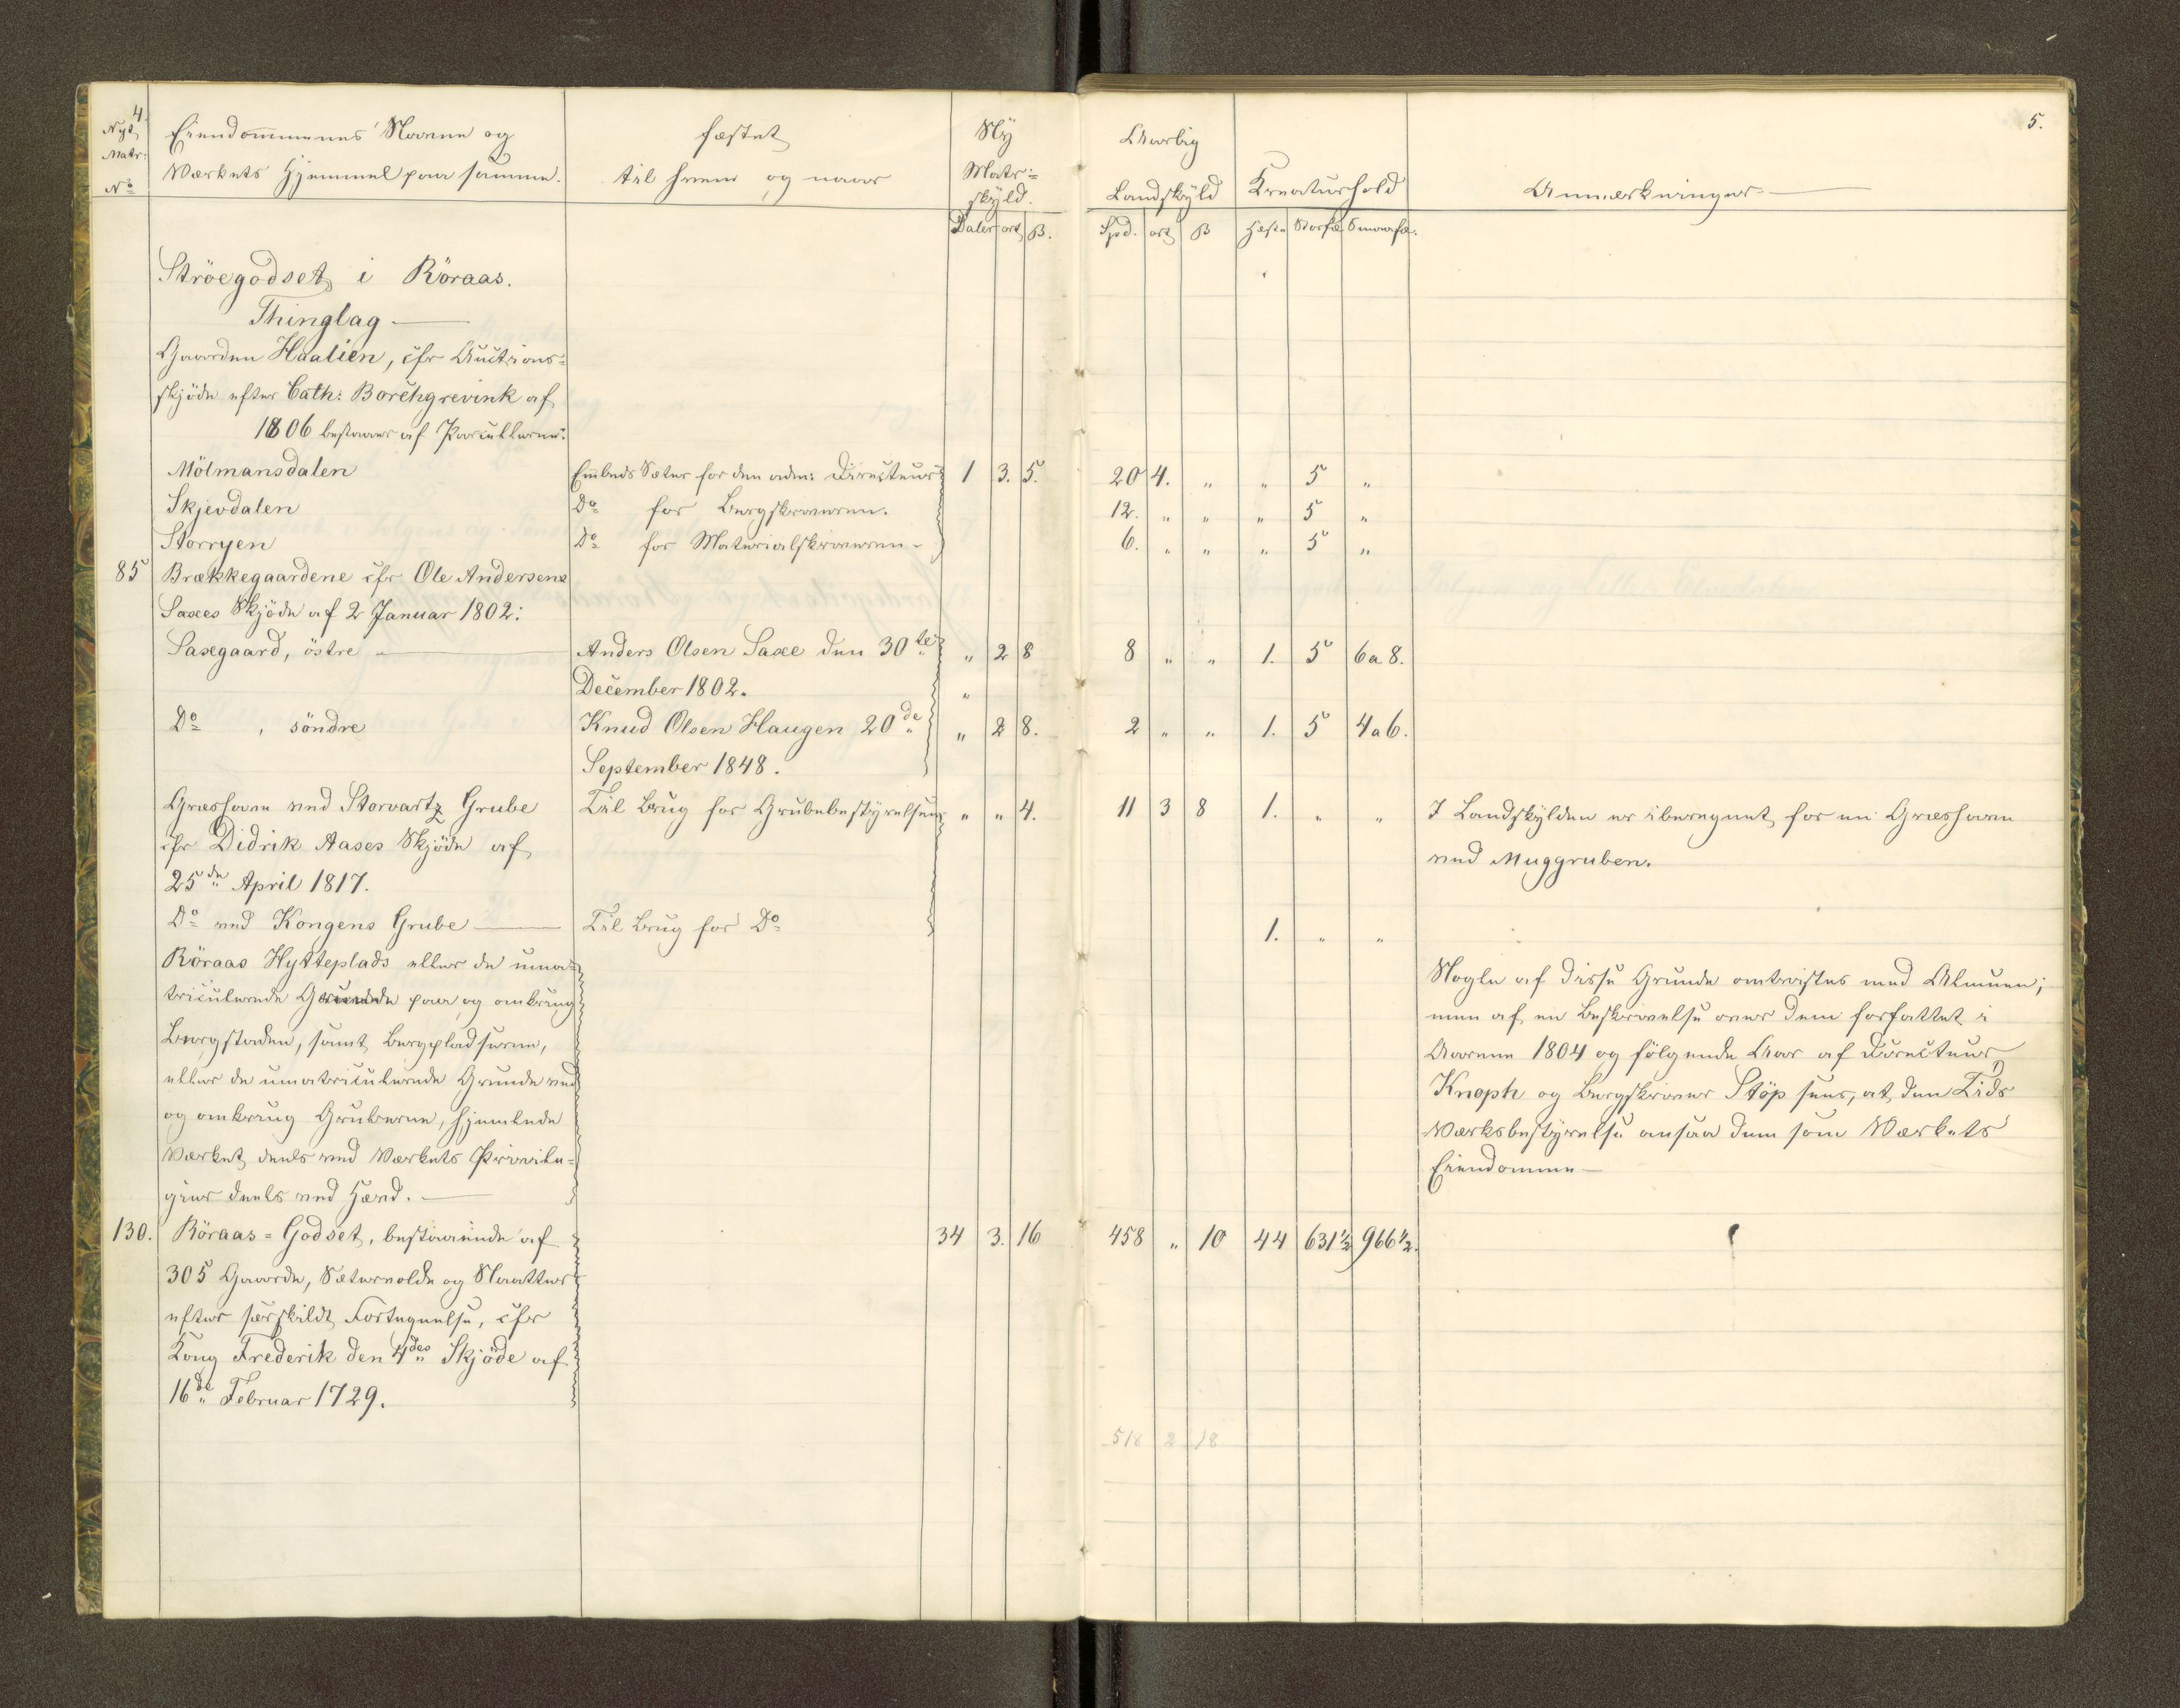 4.
Nyt Matr: No
Eiendommenes Navne og
Værkets Hjemmel paa samme.
fæstet
til hvem og naar
Ny
Matr:=
skyld.
Daler ort ß.
Aarlig
Landskyld
Spd. ort ß
Kreaturhold
Heste Storfæ Smaafæ.
Anmærkninger
5.
Ströegodset i Röraas.
Thinglag
Gaarden Haalien, cfr Auctions=
skjöde efter Cath: Borchgrevink af
1806 bestaaer af Parcellerne:
Mölmansdalen Embeds Sæter for den adm: Directeur 1 3. 5. 20 4. " " 5 "
Skjevdalen Do for Bergskriveren. 12. " " " 5 "
Storryen Do for Materialskriveren 6. " " " 5 "
85 Brækkegaardene cfr Ole Andersens
Saxes Skjöde af 2 Januar 1802:
Saxegaard, östre Anders Olsen Saxe den 30te " 2 8 8 " " 1. 5 6 a 8.
December 1802. "
Do , söndre Knud Olsen Haugen 20de " 2 8. 2 " " 1. 5 4 a 6.
September 1848.
Græshavn ved Storvartz Grube Til Brug for Grubebestyrelsen " " 4. 11 3 8 1. " " I Landskylden er iberegnet for en Græshavn
cfr Didrik Aases Skjöde af ved Muggruben.
25de April 1817.
Do ved Kongens Grube Til Brug for Do 1. " "
Röraas Hytteplads eller de uma=
triculerede Grunde paa og omkring
Bergstaden, samt Bergpladserne,
eller de umatriculerede Grunde ved
og omkring Gruberne, hjemlede
Værket deels ved Værkets Privile=
gier deels ved Hævd.
Nogle af disse Grunde omtvistes med Almuen;
men af en Beskrivelse over dem forfattet i
Aarene 1804 og fölgende Aar af Directeur
Knoph og Bergskriver Stöp sees, at den Tids
Værksbestyrelse ansaa dem som Værkets
Eiendomme
130. Röraas=Godset, bestaaende af 34 3. 16 458 " 10 44 631½ 966½.
305 Gaarde, Sætervolde og Slaatter
efter særskildt Fortegnelse, cfr
Kong Frederik den 4des Skjöde af
16de Februar 1729.
518 2 18